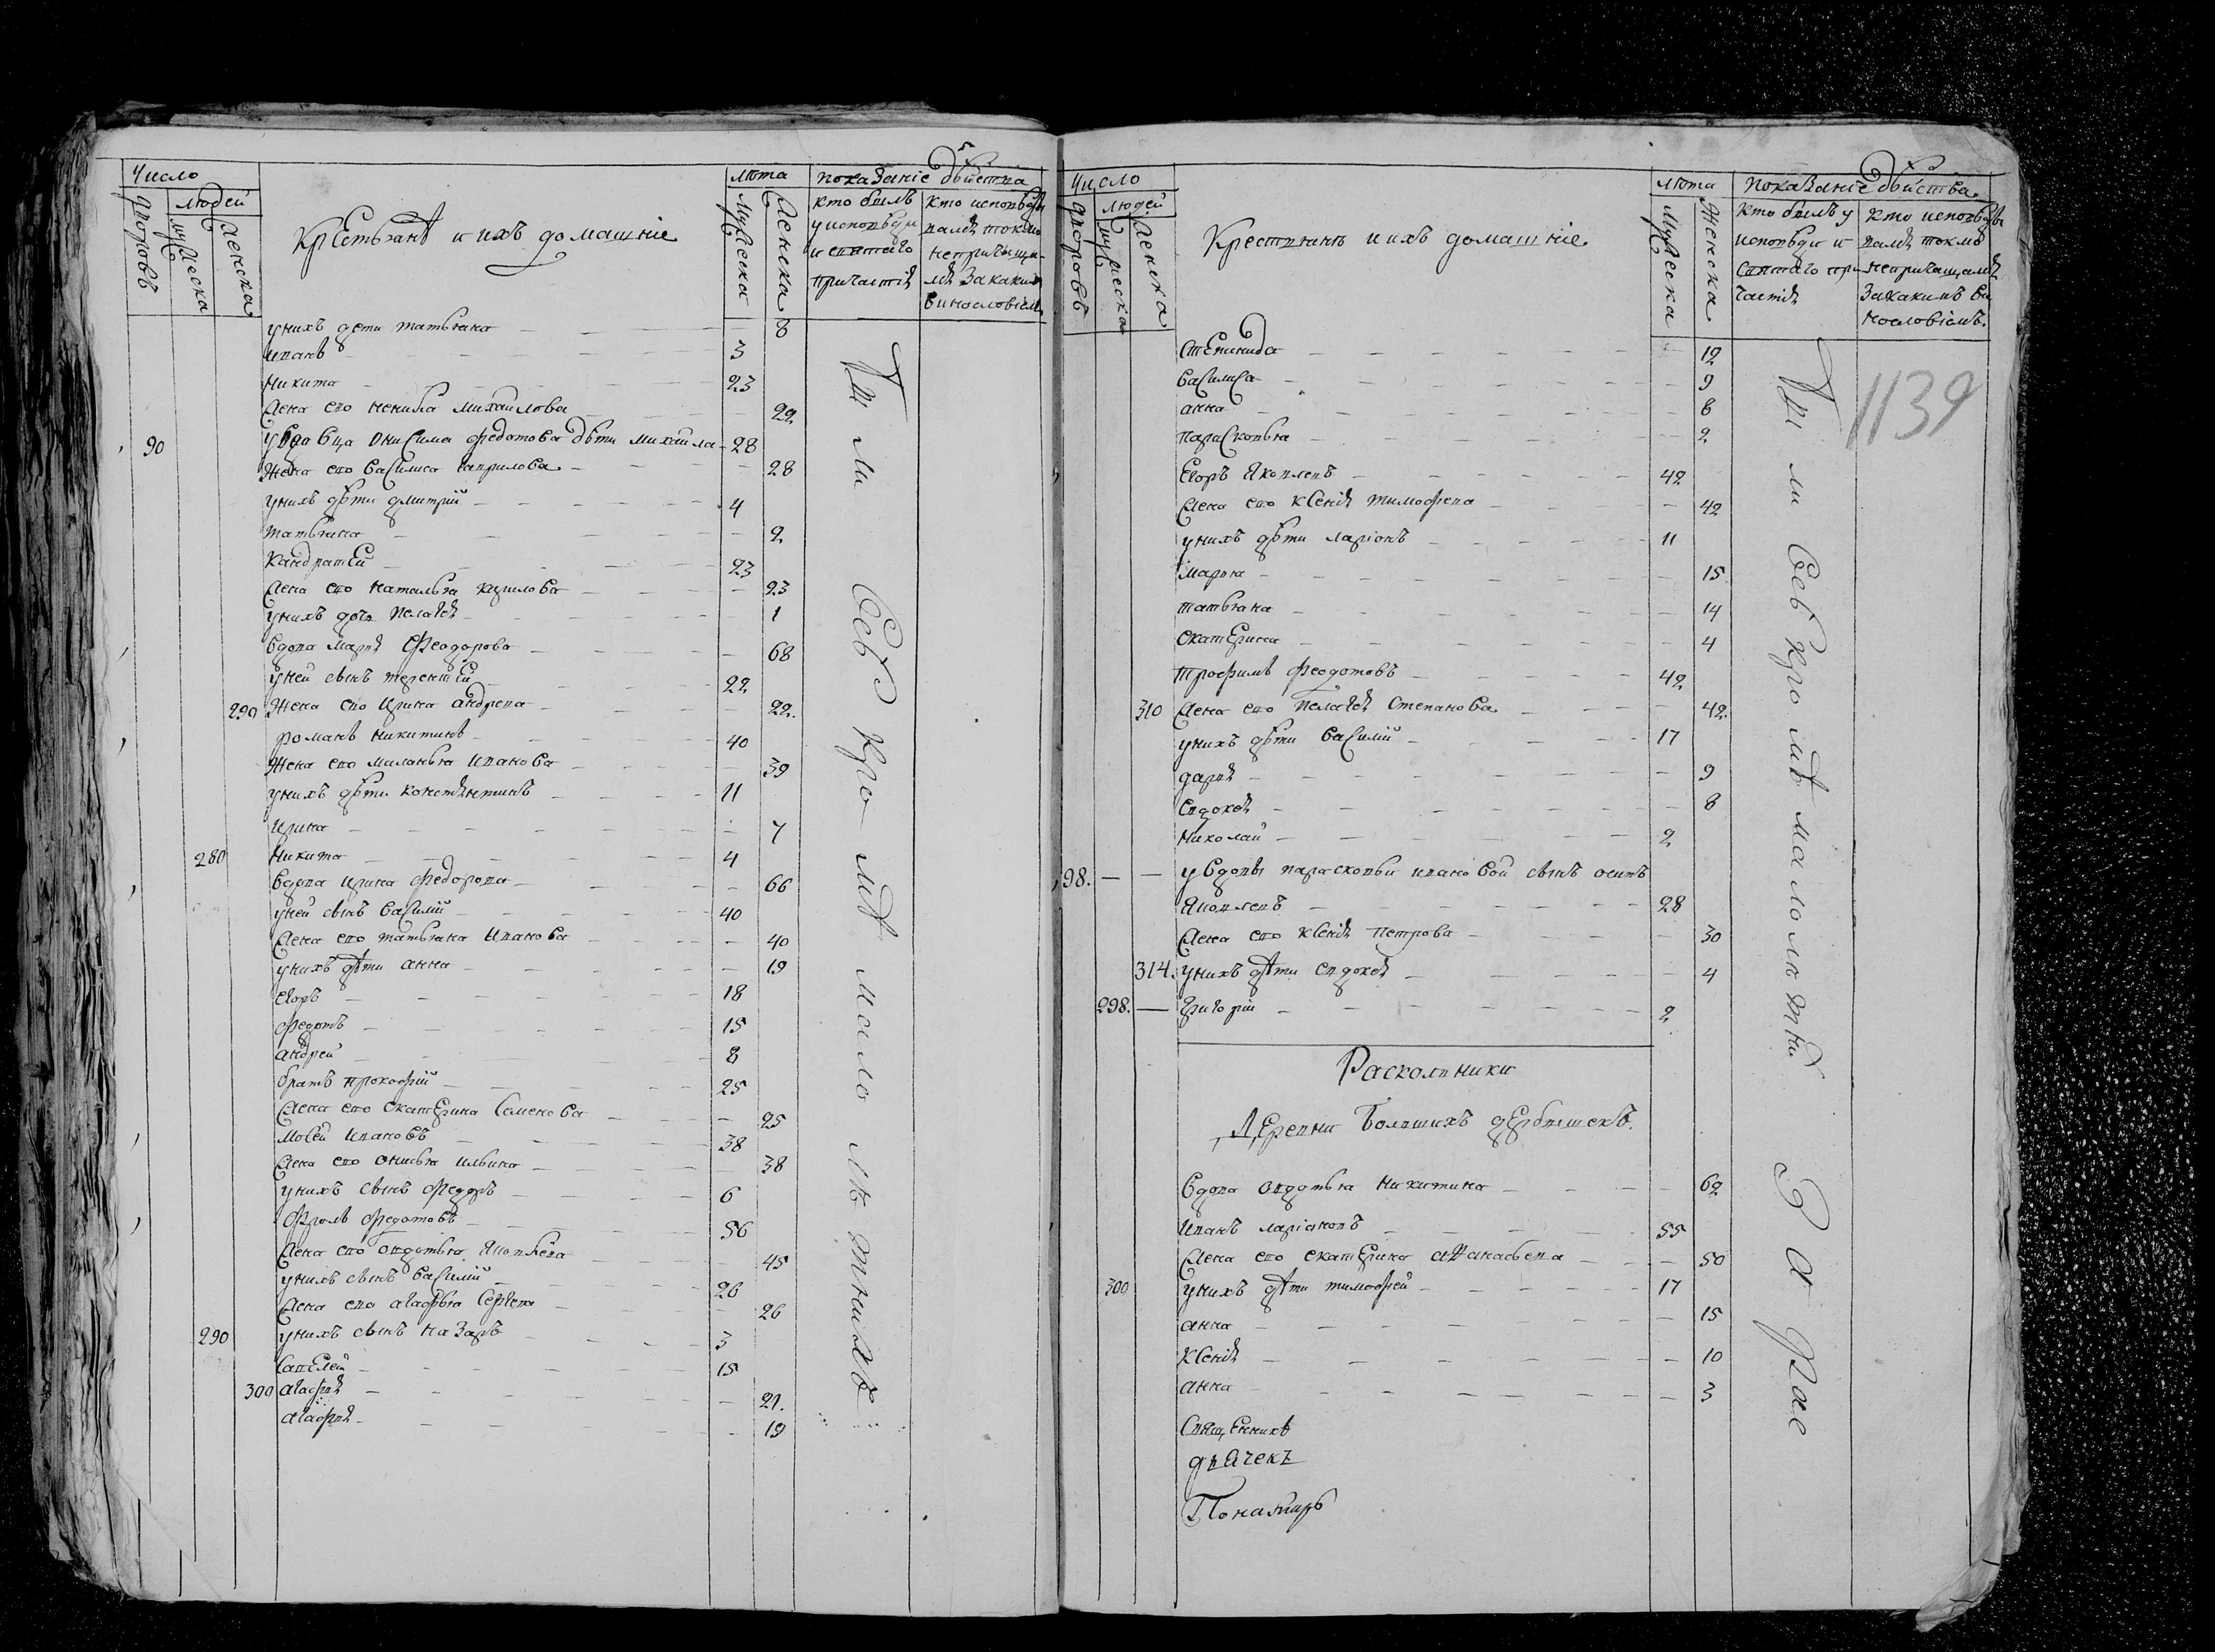 Число
людей
дворовъ
мужеска
женска
Крестьянѣ и ихъ домашнїе
лѣта
мужеска
женска
показанїе дѣйства
кто былъ
у исповѣди
и святаго
причастїя
кто исповѣды
валъ токмо
не причаща
ля за каким
винословїем
у нихъ дети татьяна 8
иванъ 3
никита 23
жена его ненила михаилова 22
90 у вдовца онисима федотова дѣти михаила 28
жена его василиса гаврилова 28
у нихъ дѣти дмитрїй 4
татьяна 2
кандратей 23
жена его наталья кирилова 23
у нихъ дочь пелагея 1
вдова марья феодорова 68
у ней сынъ терентей 22
290 жена его ирина андрева 22.
романъ никитинъ 40
жена его миланья иванова 39
у нихъ дѣти констянтинъ 11
ирина 7
280 никита 4
вдова ирина федорова 66
у ней сынъ василїй 40
жена его татьяна иванова 40
у нихъ дѣти анна 19
егоръ 18
федотъ 15
андрей 8
братъ прокофїй 25
жена его екатерина семенова 25
мосей ивановъ 38
жена его онисья ильина 38
у нихъ сынъ федоръ 6
фролъ федотовъ 56
жена его овдотья яковлева 45
у нихъ сынъ василїй 26
жена его агафья сергева 26
290 у нихъ сынъ назаръ 3
савелей 15
300 агафья 21.
агафья 19
Тїи ли всѣ кромѣ малолѣтнихъ
Число
людей
дворовъ
мужеска
женска
Крестьянъ и ихъ домашнїе
лѣта
мужеска
женска
показанїе дѣйства
кто былъ у
исповѣди и
святаго при
частїя
кто исповѣды
валъ токмо
не причащался
за какимъ ви
нословїемъ.
1139
степанида 12
василиса 9
анна 6
парасковья 2
егоръ яковлевъ 42
жена его ксенїя тимофева 42
у нихъ дѣти ларїонъ 11
марья 15
татьяна 14
екатерина 4
трофимъ феодотовъ 42
310 жена его пелагея степанова 42.
у нихъ дѣти василїй 17
дарья 9
евдокея 8
николай 2
98. у вдовы парасковьи ивановой сынъ осипъ
яковлевъ 28
жена его ксенїя петрова 30
314. у нихъ дѣти евдокея 4
298. григорїй 2
Раскольники
Деревни Большихъ дербышекъ.
вдова овдотья никитина 62
иванъ ларїоновъ 55
жена его екатерина аѳанасьева 50
300 у нихъ дѣти тимофей 17
анна 15
ксенїя 10
анна 3
Священникъ
дьячекъ
Понамарь
Тїи ли всѣ кромѣ малолѣтнихъ
За рас